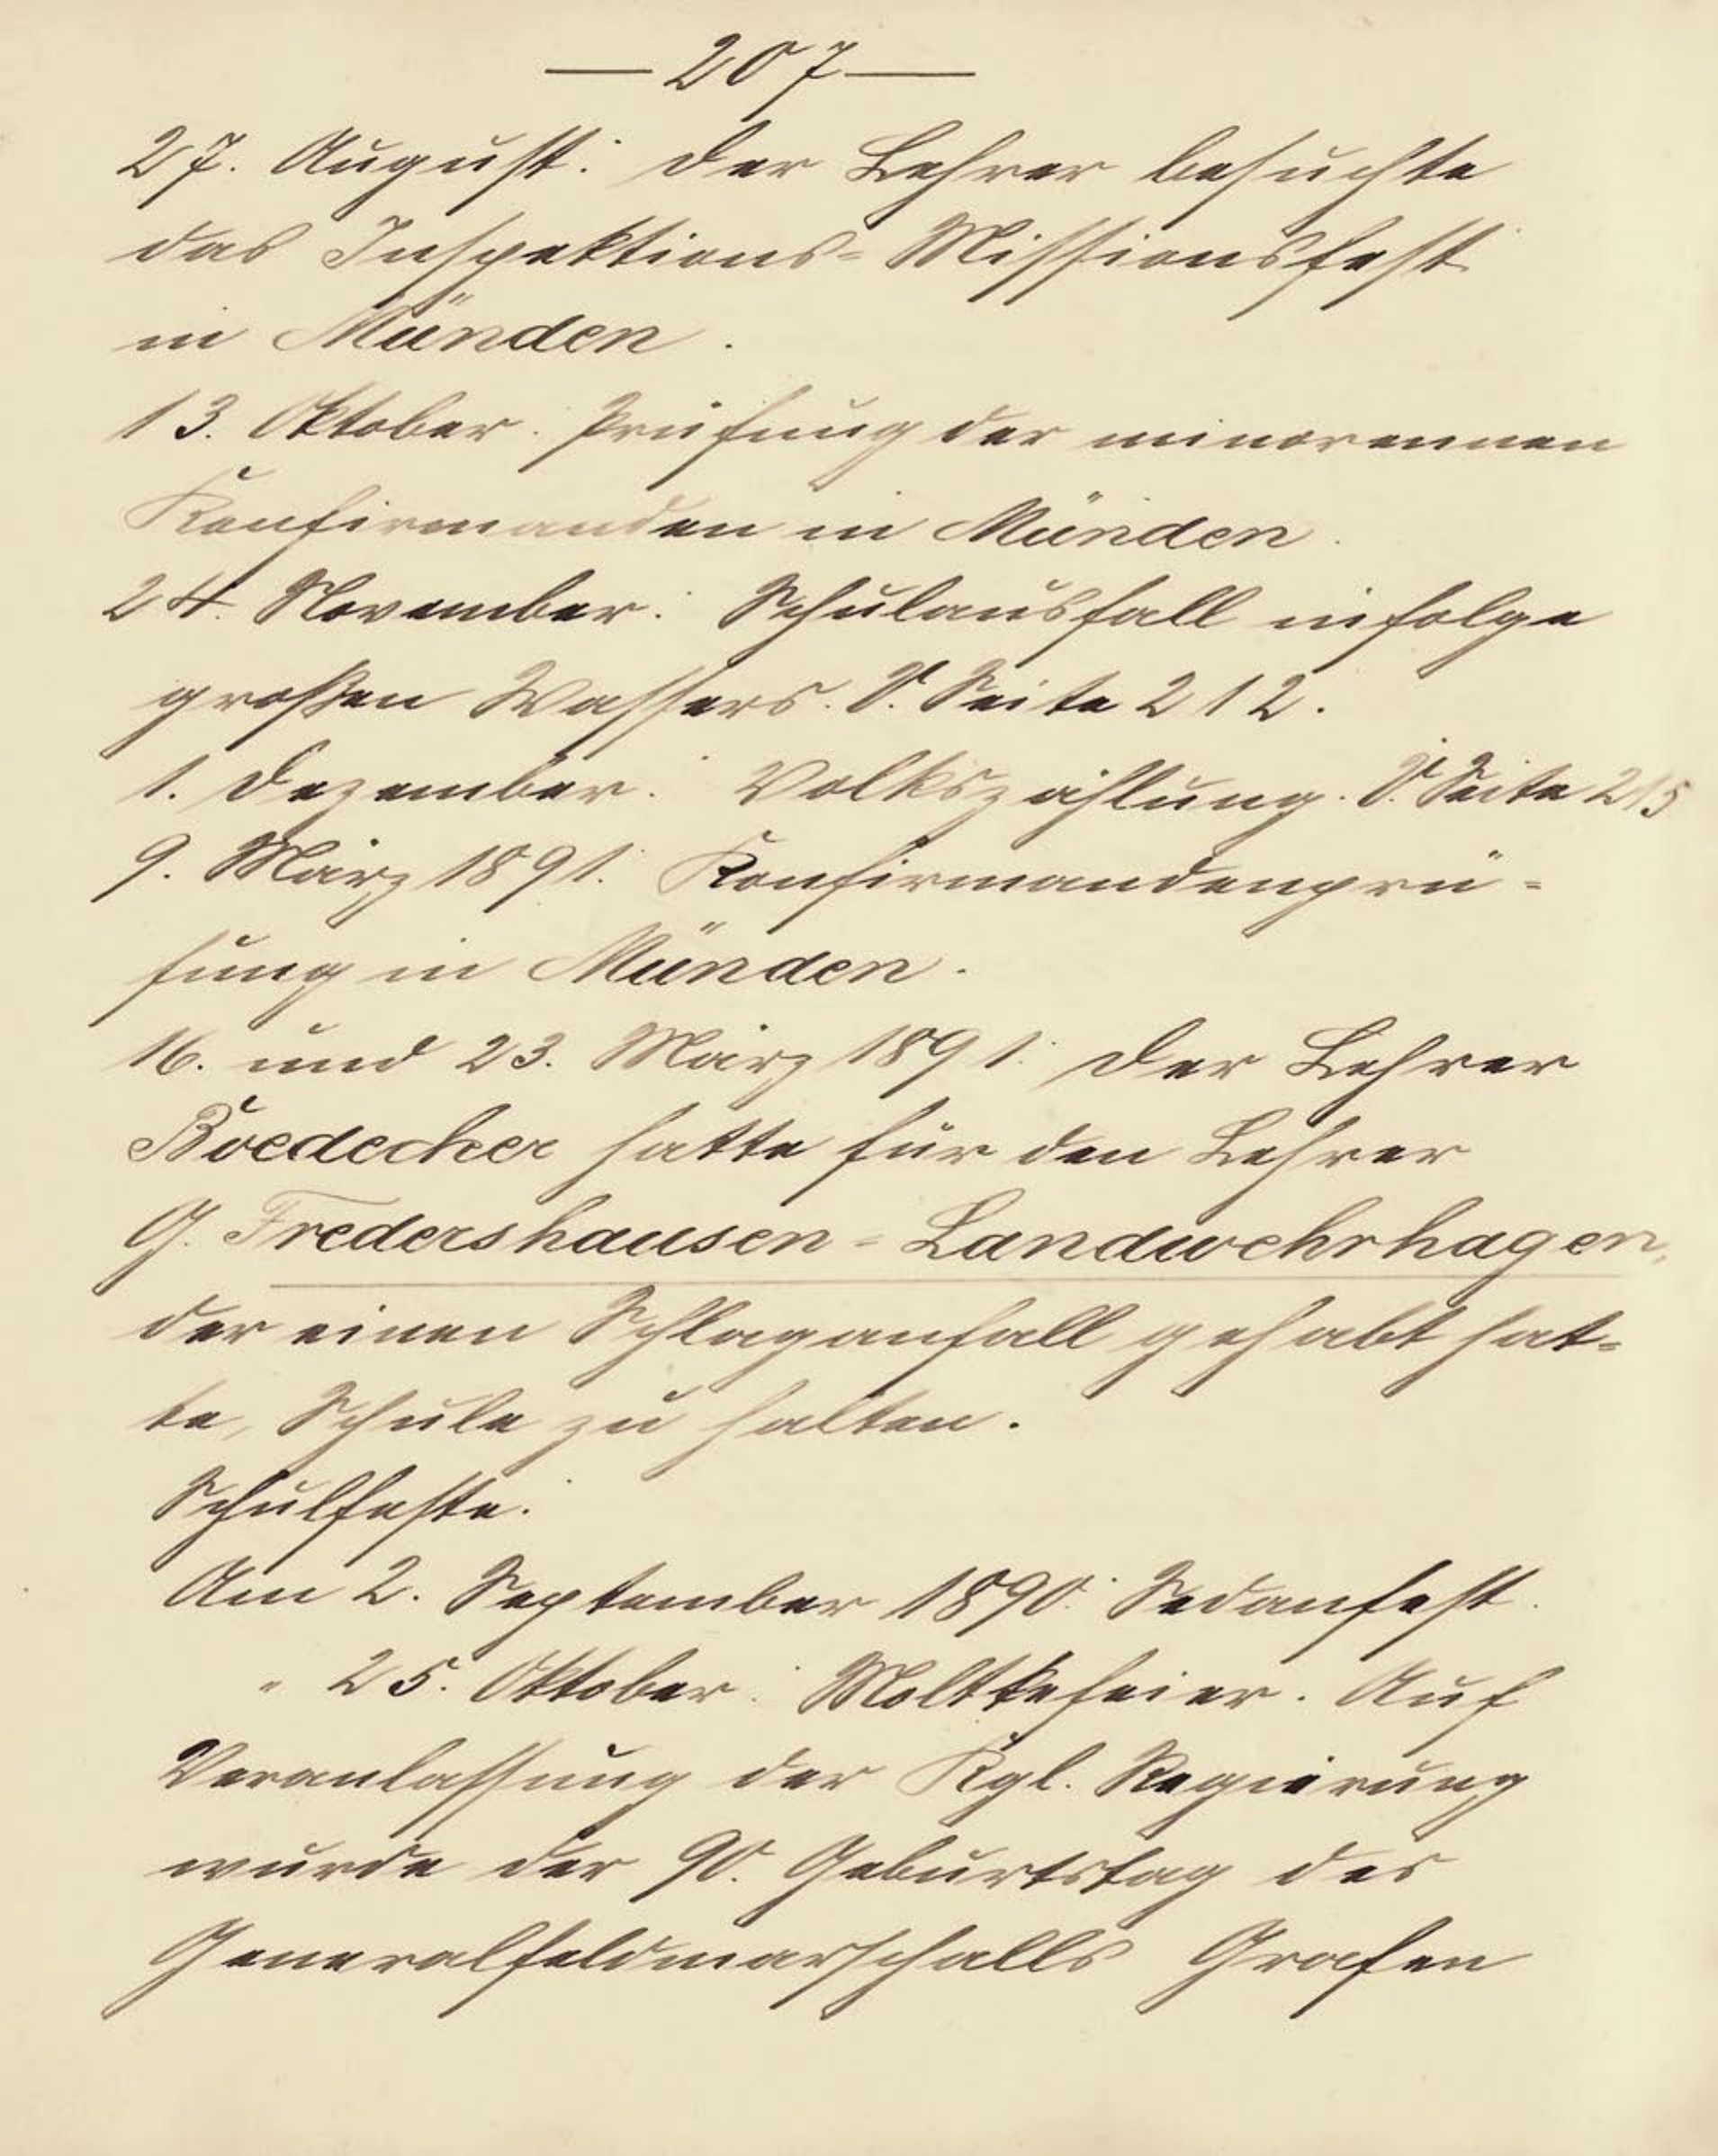 — 207 —
27. August: Der Lehrer besuchte
das Inspektions-Missionsfest
in Münden.
13. Oktober: Prüfung der minorennen
Konfirmanden in Münden.
24. November: Schulausfall infolge
großen Wassers. S. Seite 212.
1. Dezember: Volkszählung. S. Seite 215
9. März 1891: Konfirmandenprü-
fung in Münden.
16. und 23. März 1891: Der Lehrer
Boedecker hatte für den Lehrer
G. Fredershausen-Landwehrhagen,
der einen Schlaganfall gehabt hat-
te, Schule zu halten.
Schulfeste:
Am 2. September 1890: Sedanfest.
" 25. Oktober: Moltkefeier. Auf
Veranlassung der Kgl. Regierung
wurde der 90. Geburtstag des
Generalfeldmarschalls Grafen